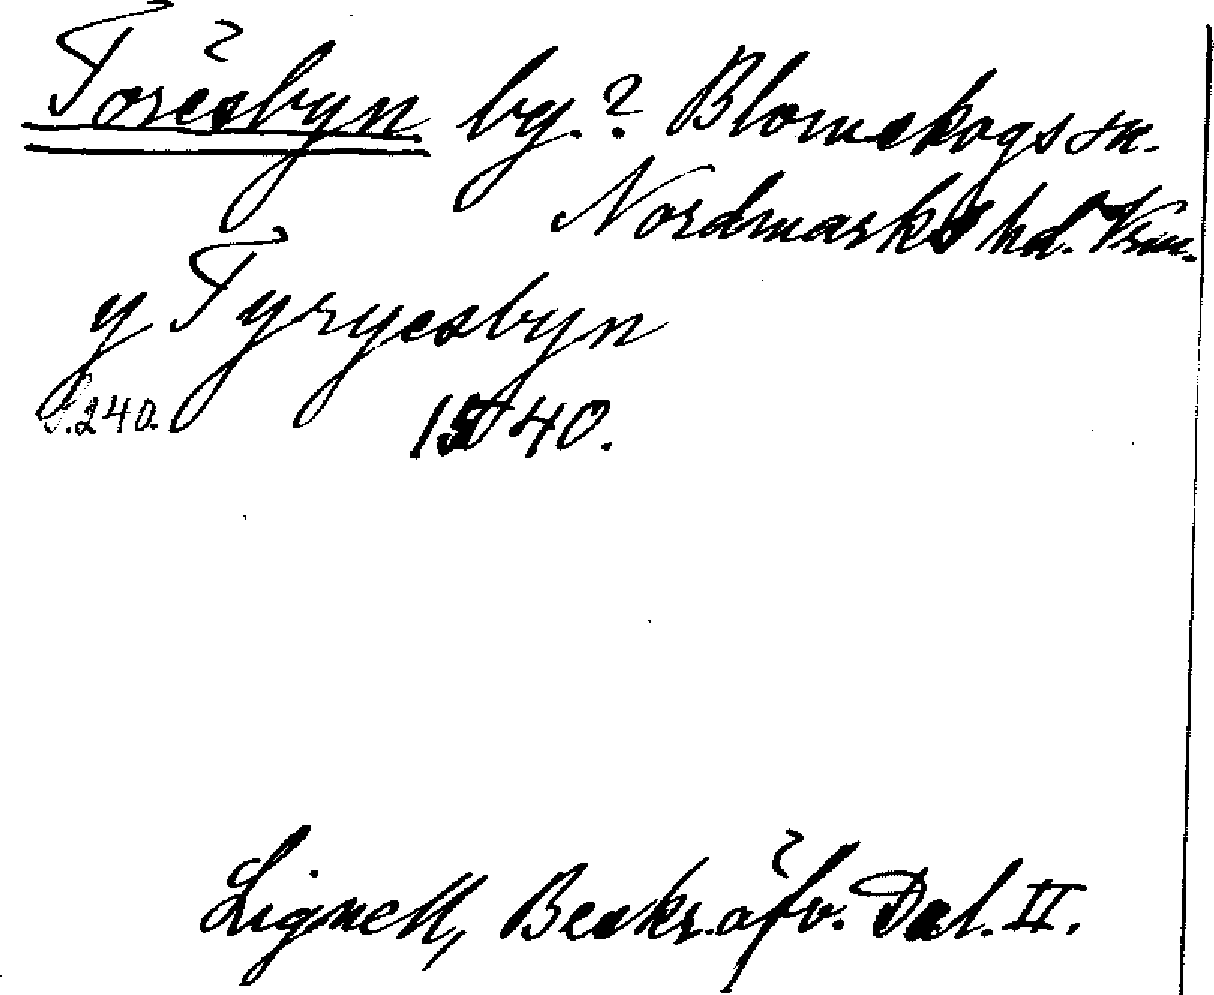 Toresbyn by.? Blomskogs sn.
Nordmarks hd. Vrm.
y Tyryesbyn
S. 240. 1540.
Lignell, Beskr. öfv. Dal. II.